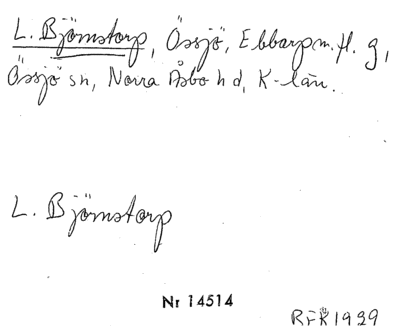 L. Björnstorp, Össjö, Ebbarp m. fl. g,
Össjö sn, Norra Åsbo hd, K-län.
L. Björnstorp
Nr 14514
RFR 1939